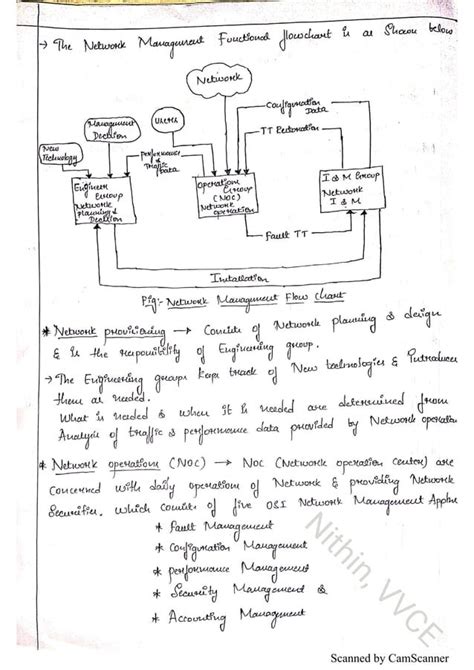 → The Network Management Functional flowchart is as shown below
Network
Management
Decision
Users
New
Technology
Configuration
Data
TT Restoration
Performance
&
Traffic
Data
Engineer
Group
Network
planning &
Decision
Operations
Group
(NOC)
Network
operation
I & M Group
Network
I & M
Fault TT
Installation
Fig:- Network Management Flow chart
* Network provisioning → Consists of Network planning & design
& is the responsibility of Engineering group.
→ The Engineering groups keeps track of New technologies & introduces
them as needed.
What is needed & when it is needed are determined from
Analysis of traffic & performance data provided by Network operation
* Network operations (NOC) → NOC (Network operation center) are
concerned with daily operations of Network & providing Network
Securities. which consists of five OSI Network Management Applns
* Fault Management
* Configuration Management
* performance Management
* Security Management &
* Accounting Management
Nithin, VVCE
Scanned by CamScanner